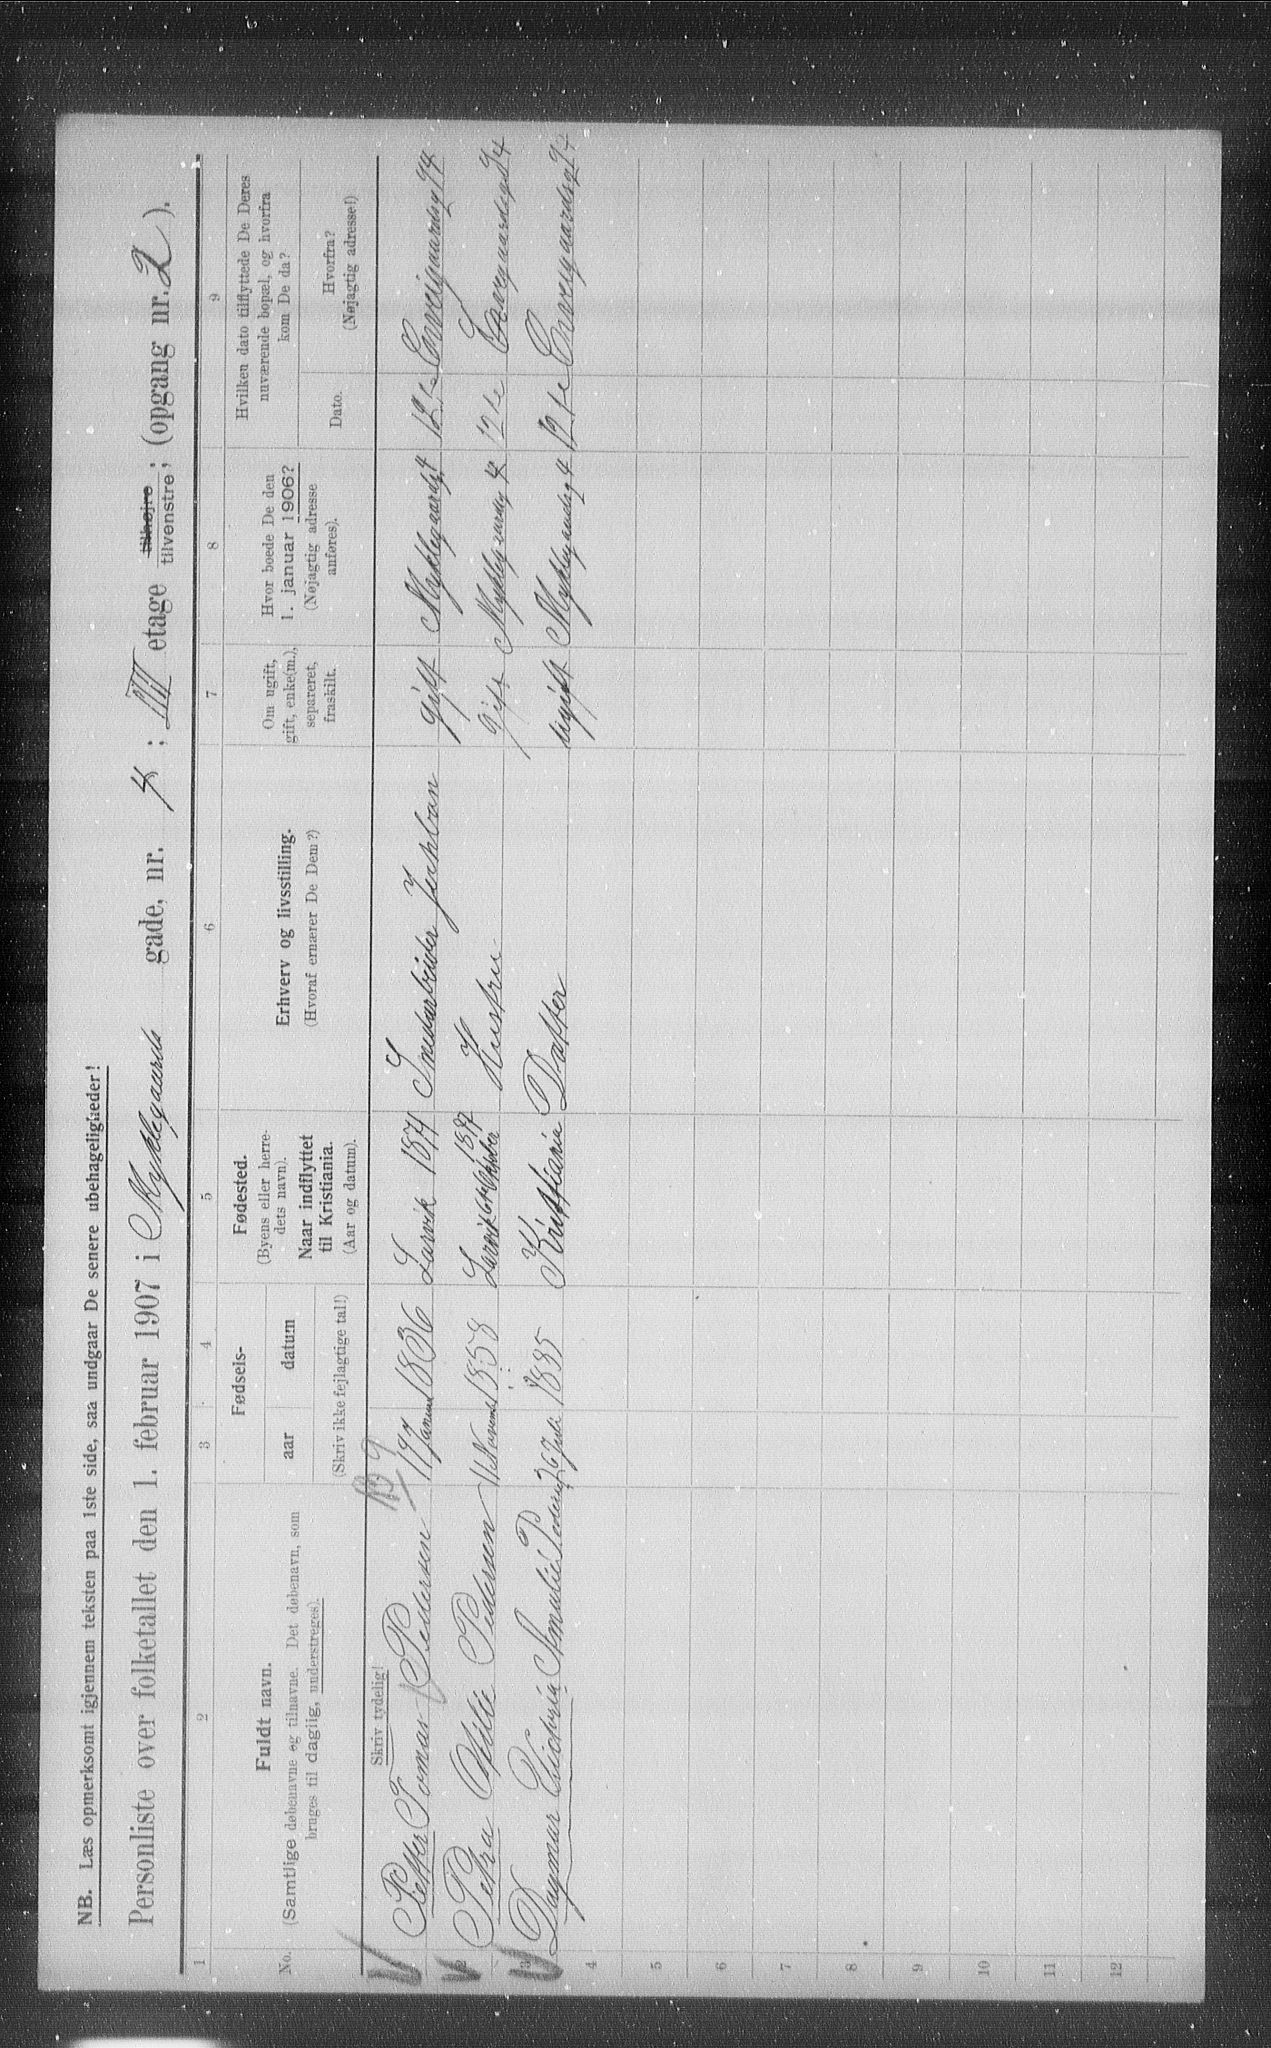 NB. Læs opmerksomt igjennem teksten paa 1ste side, saa undgaar De senere ubehageligheder!
Personliste over folketallet den 1. februar 1907 i Myklegaards gade, nr. 4 ; III etage tilhøjre tilvenstre ; (opgang nr. 2 ).
1 2 3 4 5 6 7 8 9
No.
Fuldt navn.
(Samtlige døbenavne og tilnavne. Det døbenavn, som
bruges til daglig, understreges).
Fødsels-
aar datum
(Skriv ikke fejlagtige tal!)
Fødested.
(Byens eller herre-
dets navn).
Naar indflyttet
til Kristiania.
(Aar og datum).
Erhverv og livsstilling.
(Hvoraf ernærer De Dem?)
Om ugift,
gift, enke(m.),
separeret,
fraskilt.
Hvor boede De den
1. januar 1906?
(Nøjagtig adresse
anføres).
Hvilken dato tilflyttede De Deres
nuværende bopæl, og hvorfra
kom De da?
Dato.
Hvorfra?
(Nøjagtig adresse!)
Skriv tydelig!
Petter Tomas Pedersen 1836 Larvik 1871 gift Myklegaardsg 4
2 Petra Pedersen 1858 Larvik 6te Oktober Hustru gift Myklegaardsg 4 12te
3 Dagmar Amalie Pedersen 26 Juli 1885 Kristiania Datter ugift Myklegaardsg 4 12te
4
5
6
7
8
9
10
11
12